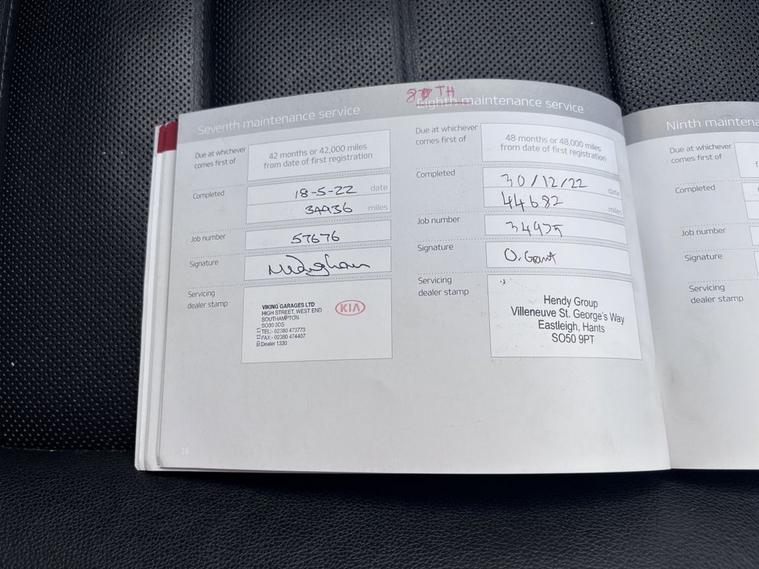 Seventh maintenance service
Due at whichever
comes first of
42 months or 42,000 miles
from date of first registration
Completed
18-5-22 date
34936 miles
Job number
57676
Signature
Servicing
dealer stamp
VIKING GARAGES LTD
HIGH STREET, WEST END
SOUTHAMPTON
SO30 3DS
TEL:- 02380 473773
FAX:- 02380 474407
Dealer 1330
KIA
TH
Eighth maintenance service
Due at whichever
comes first of
48 months or 48,000 miles
from date of first registration
Completed
30/12/22 date
44682 miles
Job number
34975
Signature
O. Grant
Servicing
dealer stamp
Hendy Group
Villeneuve St. George's Way
Eastleigh, Hants
SO50 9PT
Ninth maintena
Due at whichever
comes first of
Completed
Job number
Signature
Servicing
dealer stamp